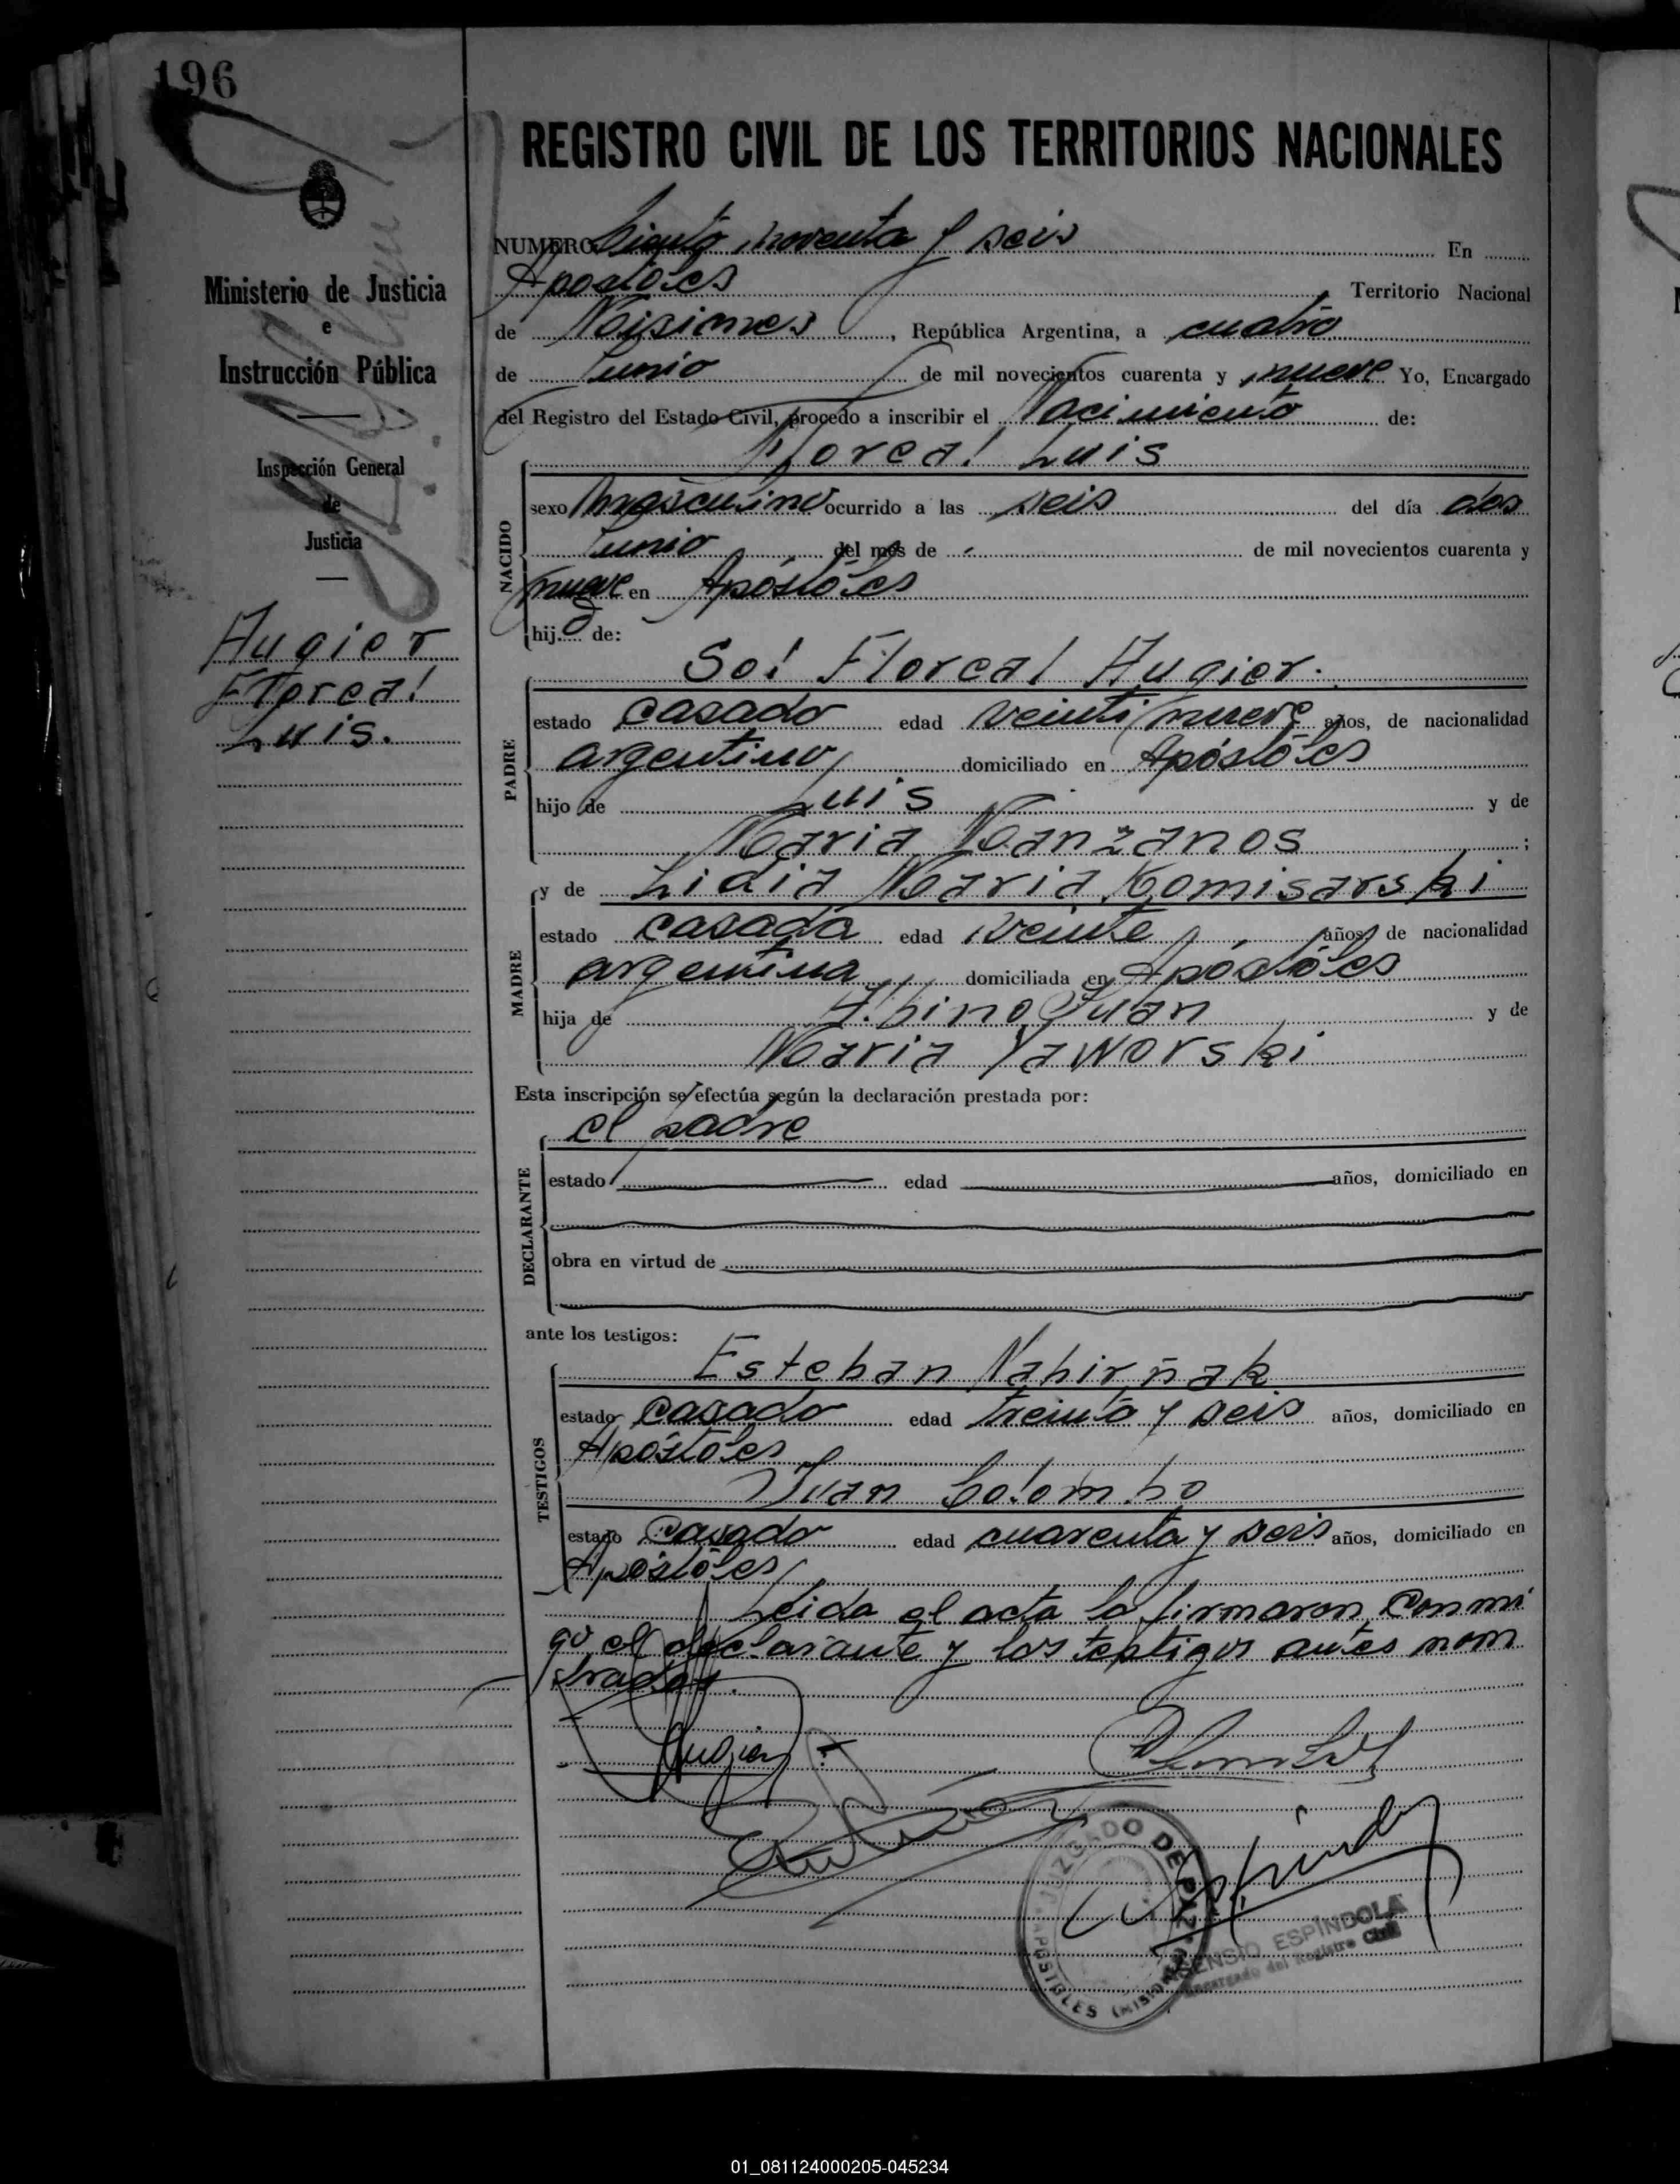 196
REGISTRO CIVIL DE LOS TERRITORIOS NACIONALES
Ministerio de Justicia
e
Instrucción Pública
Inspección General
de
Justicia
Augier
Floreal
Luis.
NUMERO Ciento noventa y seis En
Apostoles, Territorio Nacional
de Misiones, República Argentina, a cuatro
de Junio de mil novecientos cuarenta y nueve Yo, Encargado
del Registro del Estado Civil, procedo a inscribir el Nacimiento de:
NACIDO
Floreal Luis
sexo Masculino ocurrido a las seis del día dos
Junio del mes de de mil novecientos cuarenta y
nueve en Apóstoles
hijo de:
PADRE
Sol Floreal Augier.
estado casado edad veintinueve años, de nacionalidad
argentino domiciliado en Apóstoles
hijo de Luis y de
Maria Manzanos ;
MADRE
y de Lidia Maria Komisarski
estado casada edad veinte años, de nacionalidad
argentina domiciliada en Apóstoles
hija de Albino Juan y de
Maria Yaworski
Esta inscripción se efectúa según la declaración prestada por:
DECLARANTE
el padre
estado edad años, domiciliado en
obra en virtud de
ante los testigos:
TESTIGOS
Esteban Nahirñak
estado casado edad treinta y seis años, domiciliado en
Apóstoles
Juan Colombo
estado casado edad cuarenta y seis años, domiciliado en
Apóstoles
Leida el acta la firmaron conmi
go el declarante y los testigos antes nom
brados.
Augier
JUZGADO DE PAZ
(MISIONES)
ASENSIO ESPÍNDOLA
Encargado del Registro Civil
01_081124000205-045234